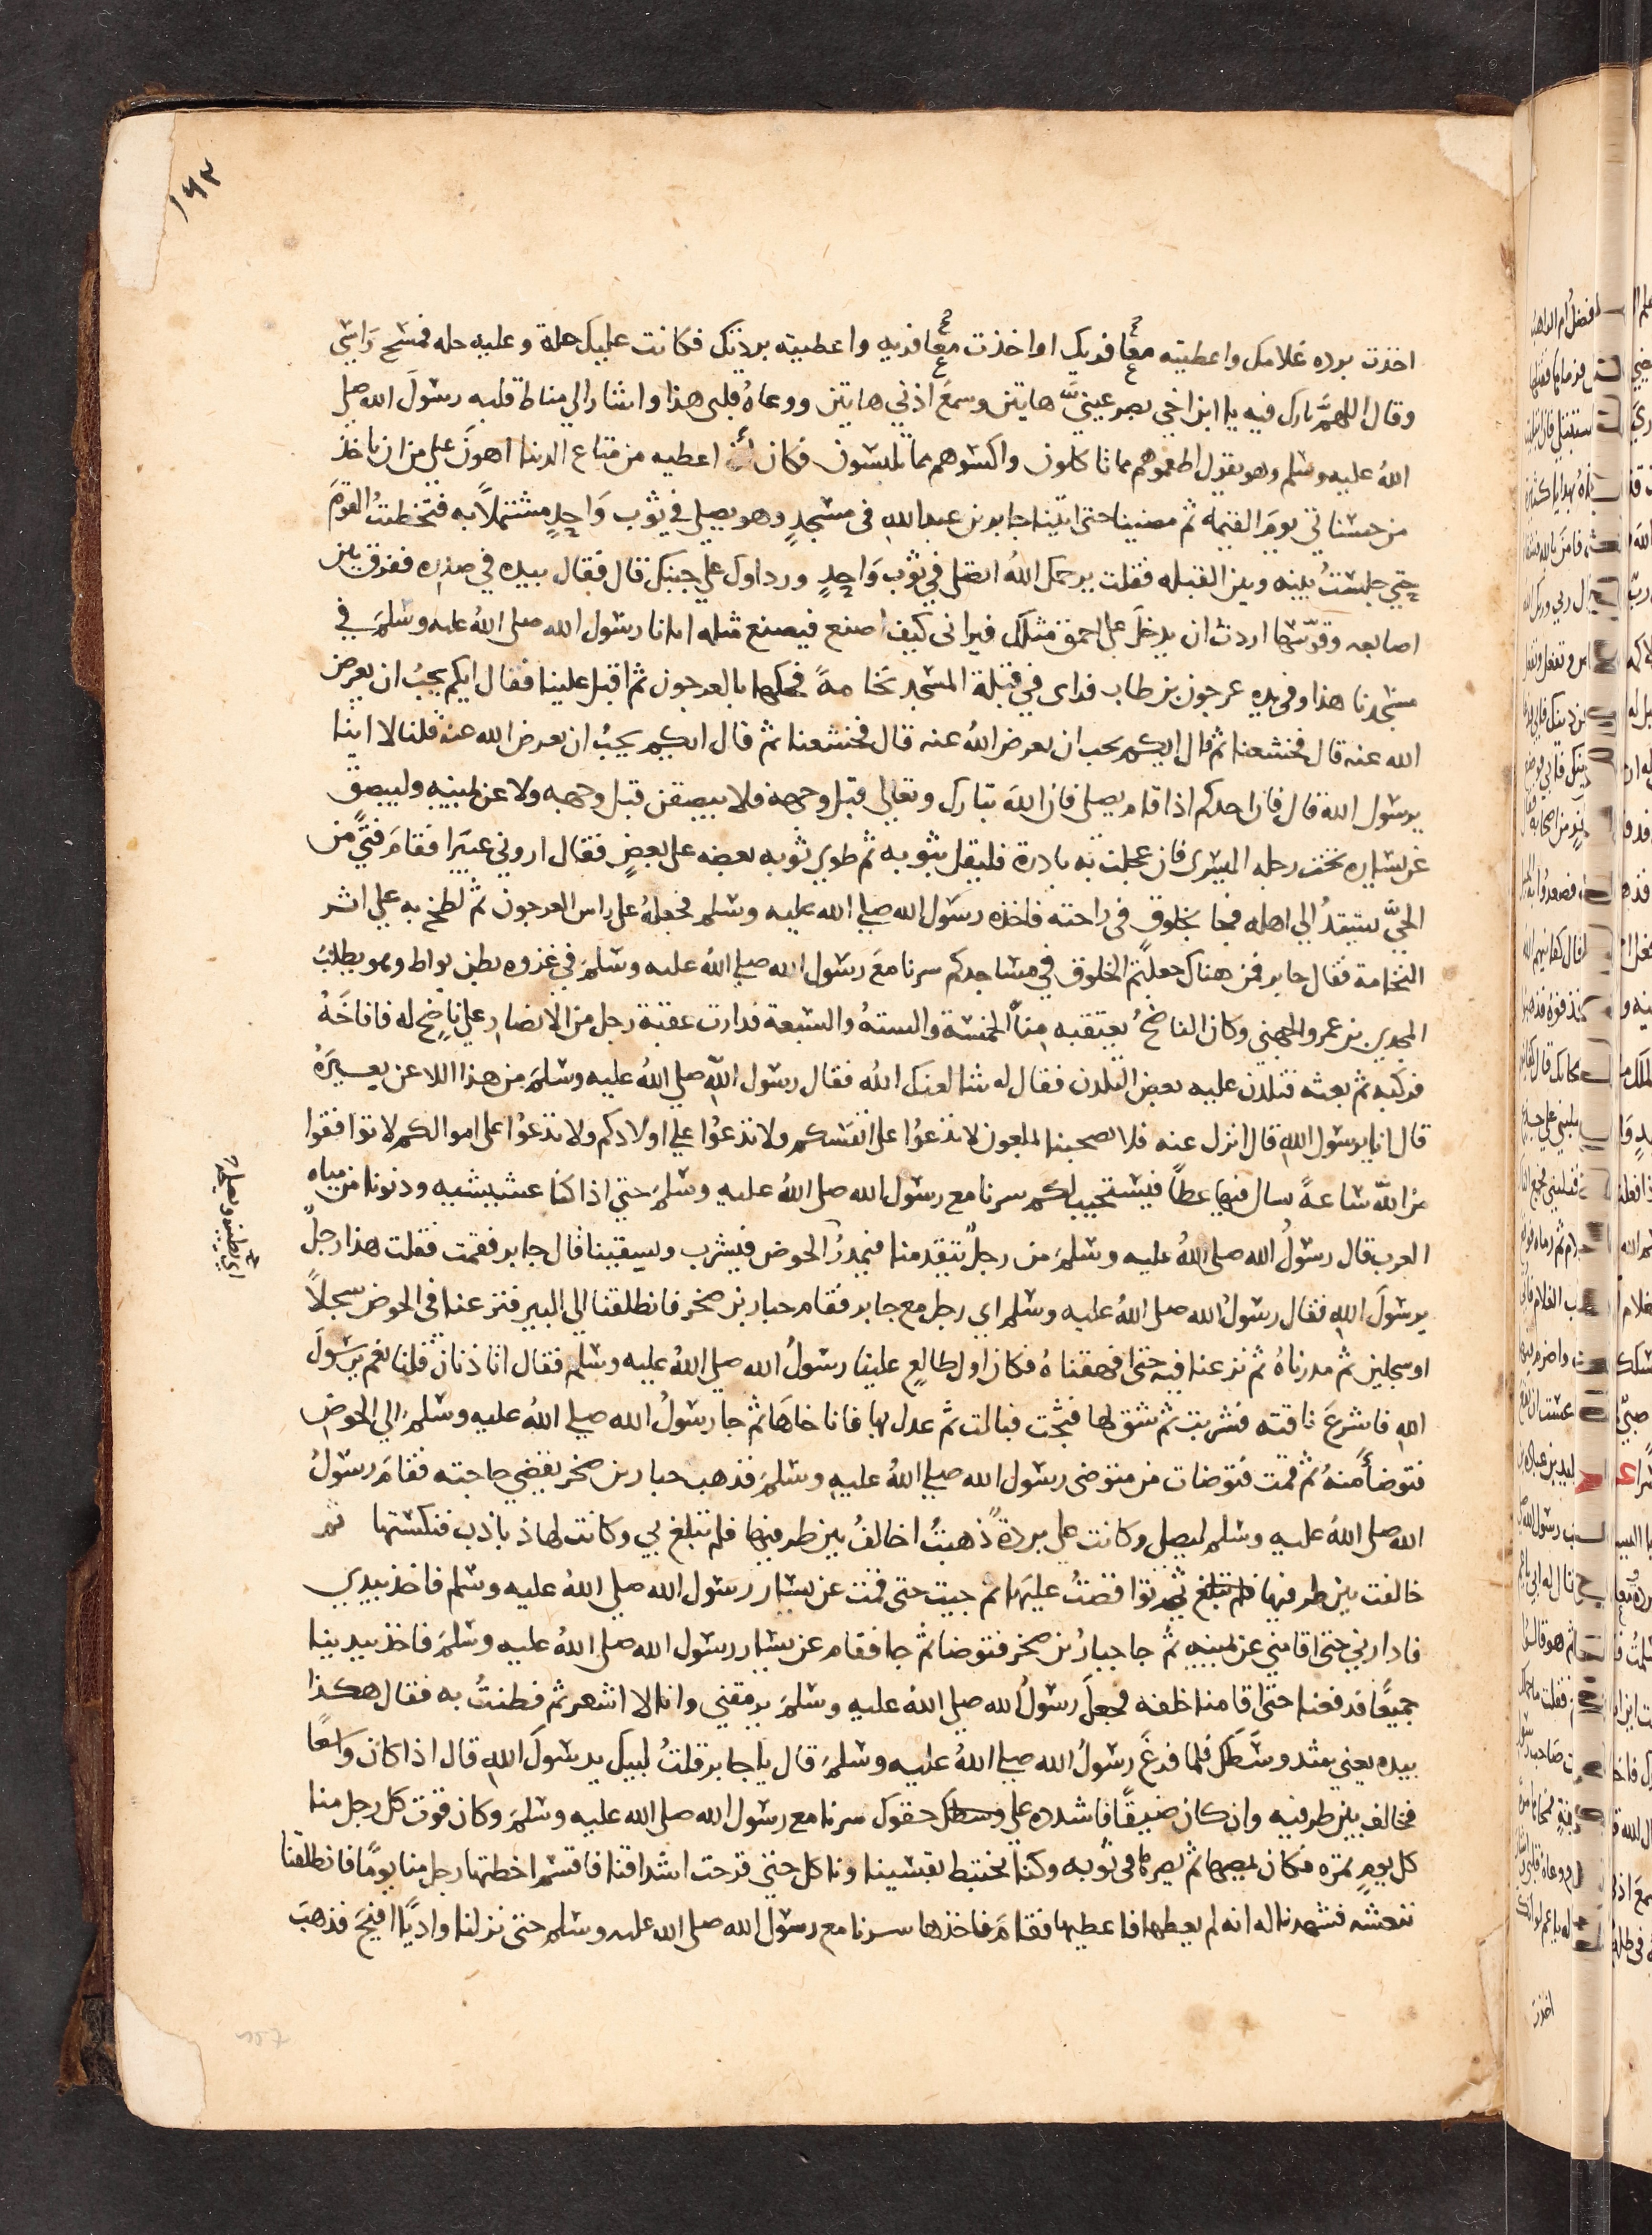 ١٩٢
اخذت برده غلامك واعطيته معافريك او اخذت معافريه واعطيته بردتك فكانت عليك حلة وعليه حله فمسح راسي
وقال اللهم بارك فيه يا ابن اخي بصر عينيّ هاتين وسمع اذني هاتين ووعاه قلبي هذا واشار الي مناط قلبه رسول الله صلي
الله عليه وسلم وهو يقول اطعموهم مما تاكلون واكسوهم مما تلبسون فكان ان اعطيه من متاع الدنيا اهون علي من ان ياخذ
من حسناتي يوم القيمة ثم مضينا حتي اتينا جابر بن عبد الله في مسجدٍ وهو يصلي في ثوب واحدٍ مشتملاً به فتخطيت القوم
حتي جلست بينه وبين القبله فقلت يرحمك الله اتصلي في ثوب واحدٍ ورداوك علي جنبك قال فقال بيده في صدره ففرق بين
اصابعه وقوسها اردت ان يدخل علي احمق مثلك فيراني كيف اصنع فيصنع مثله اتانا رسول الله صلى الله عليه وسلم في
مسجدنا هذا وفي يده عرجون بن طاب فراى في قبلة المسجد نخامةً فحكها بالعرجون ثم اقبل علينا فقال ايكم يحب ان يعرض
الله عنه قال فخشعنا ثم قال ايكم يحب ان يعرض الله عنه قال فخشعنا ثم قال ايكم يحب ان يعرض الله عنه قلنا لا اينا
يرسول الله قال فان احدكم اذا قام يصلي فان الله تبارك وتعالى قبل وجهه فلا يبصقن قبل وجهه ولا عن يمينه وليبصق
عن يساره تحت رجله اليسرى فان عجلت به بادرة فليقل بثوبه ثم طوي ثوبه بعضه على بعضٍ فقال اروني عبيرا فقام فتًى من
الحيّ يشتد الي اهله فجا بخلوقٍ في راحته فاخذه رسول الله صلي الله عليه وسلم فجعله على راس العرجون ثم لطخ به علي اثر
النخامة فقال جابر فمن هناك جعلتم الخلوق في مساجدكم سرنا مع رسول الله صلي الله عليه وسلم في غزوه بطن بواط وهو يطلب
المجدي بن عمرو الجهني وكان الناضح يعتقبه منّا الخمسة والستة والسبعة فدارت عقبة رجل من الانصار علي ناضح له فاناخه
فركبه ثم بعثه فتلدن عليه بعض التلدن فقال له شا لعنك الله فقال رسول الله صلي الله عليه وسلم من هذا اللاعن بعيره
قال انا يرسول الله قال انزل عنه فلا تصحبنا بملعون لا تدعوا على انفسكم ولا تدعوا علي اولادكم ولا تدعوا على اموالكم لا توافقوا
من الله ساعةً سال فيها عطاً فيستجيب لكم سرنا مع رسول الله صلى الله عليه وسلم حتي اذا كنا عشيشيه ودنونا من مياه
العرب قال رسول الله صلى الله عليه وسلم من رجلٌ يتقدمنا فيمدر الحوض فيشرب ويسقينا قال جابر فقمت فقلت هذا رجلٌ
يرسول الله فقال رسول الله صلى الله عليه وسلم اي رجل مع جابر فقام جبار بن صخر فانطلقنا الي البير فنزعنا في الحوض سجلاً
او سجلين ثم مدرناه ثم نزعنا فيه حتى افهقناه فكان اول طالعٍ علينا رسول الله صلي الله عليه وسلم فقال اتاذنان قلنا نعم يرسول
الله فاشرع ناقته فشربت ثم شنق لها فبثجت فبالت ثم عدل بها فاناخاها ثم جا رسول الله صلي الله عليه وسلم الي الحوض
فتوضأ منه ثم قمت فتوضات من متوضى رسول الله صلي الله عليه وسلم فذهب جبار بن صخر يقضي حاجته فقام رسول
الله صلى الله عليه وسلم ليصلي وكانت علي بردةٌ ذهبت اخالف بين طرفيها فلم تبلغ لي وكانت لها ذباذب فنكستها ثم
خالفت بين طرفيها ثم تواقصت عليها ثم جيت حتى قمت عن يسار رسول الله صلي الله عليه وسلم فاخذ بيدي
فادارني حتى اقامني عن يمينه ثم جا جبار بن صخر فتوضا ثم جا فقام عن يسار رسول الله صلى الله عليه وسلم فاخذ بيدينا
جميعًا فدفعنا حتى اقامنا خلفه فجعل رسول الله صلى الله عليه وسلم يرمقني وانا لا اشعر ثم فطنت به فقال هكذا
بيده يعني شد وسطك فلما فرغ رسول الله صلي الله عليه وسلم قال يا جابر قلت لبيك يرسول الله قال اذا كان واسعًا
فخالف بين طرفيه وان كان ضيقًا فاشدده علي حقوك سرنا مع رسول الله صلى الله عليه وسلم وكان قوت كل رجل منا
كل يومٍ تمره فكان يمصها ثم يصرها في ثوبه وكنا نختبط بقسينا وناكل حتى قرحت اشداقنا فاقسم اخطئها رجل منا يومًا فانطلقنا
ننعشه فشهدنا له انه لم يعطها فاعطيها فقام فاخذها سرنا مع رسول الله صلى الله عليه وسلم حتى نزلنا واديًا افيح فذهب